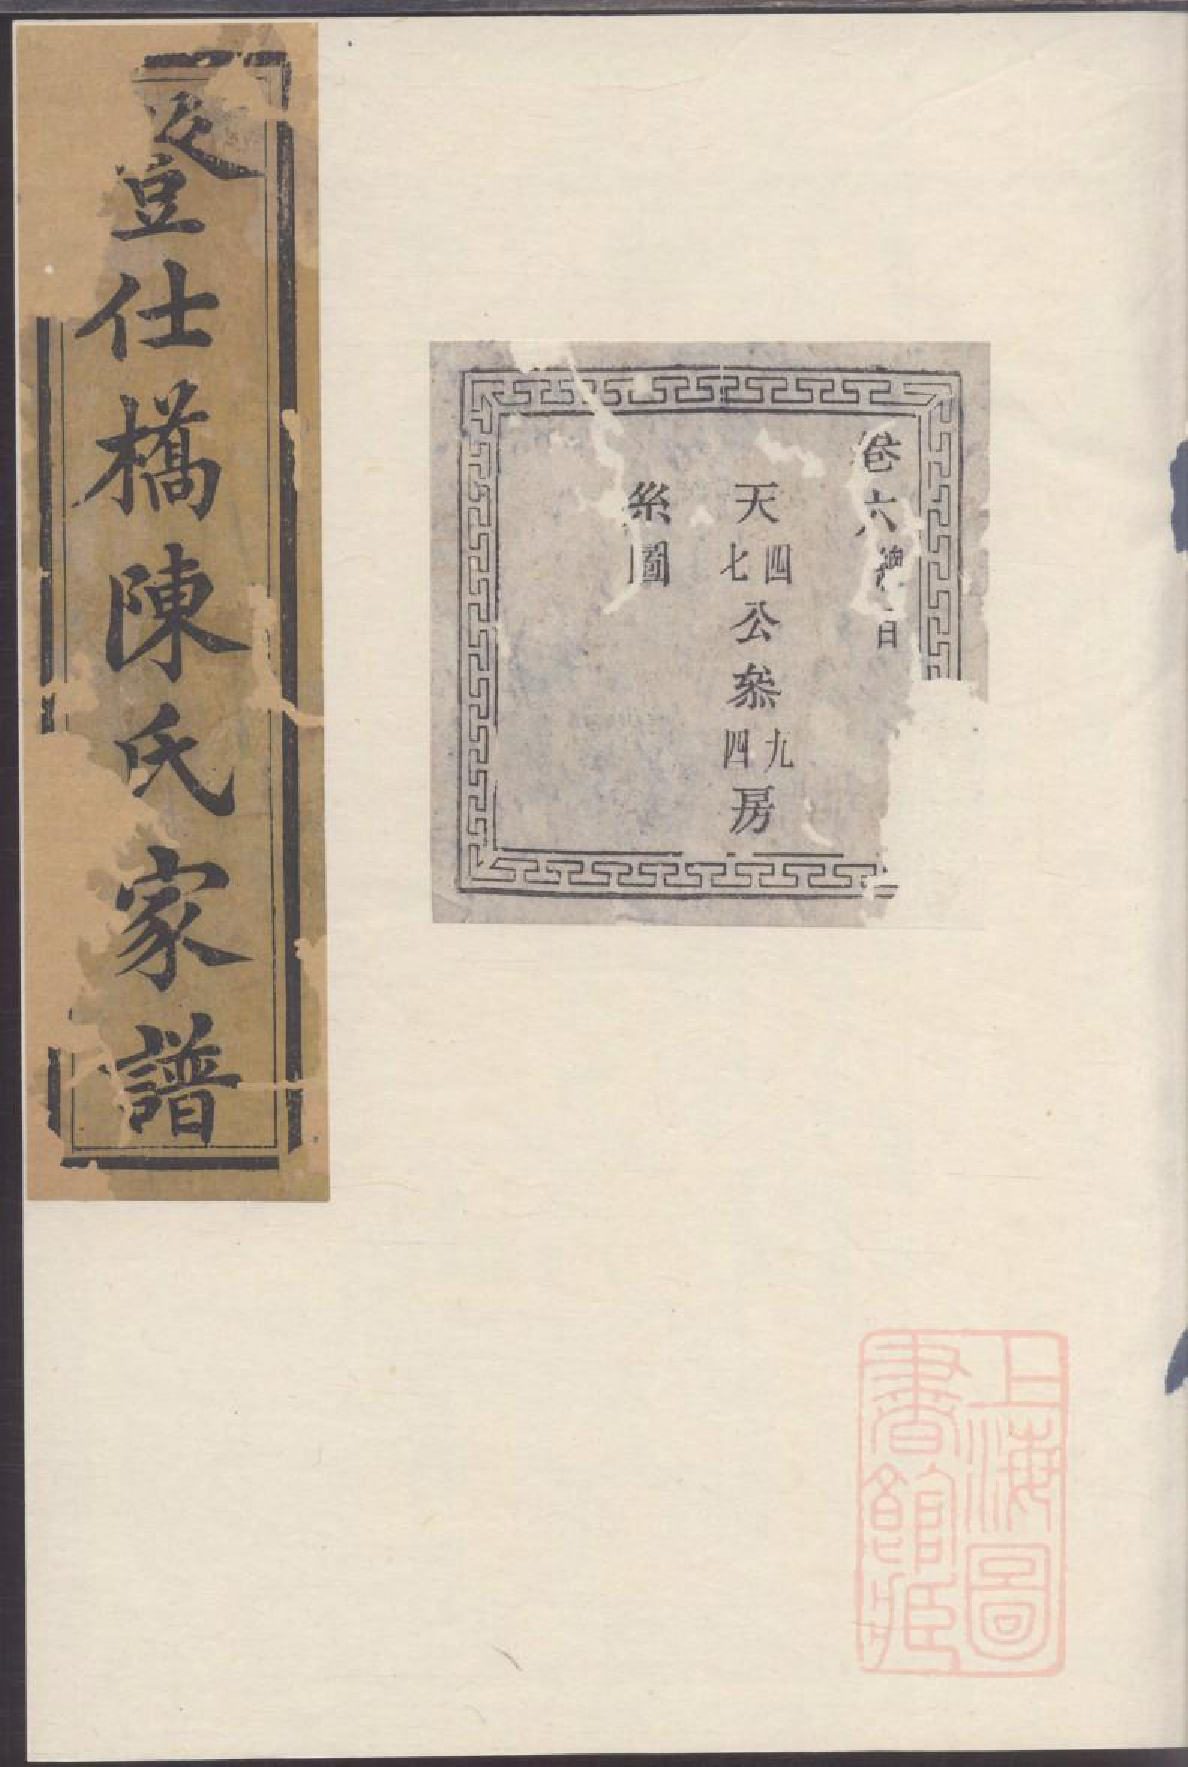 登仕橋陳氏家譜
卷六
目
天四七公叅九四房
糸圖
上海圖
書館藏